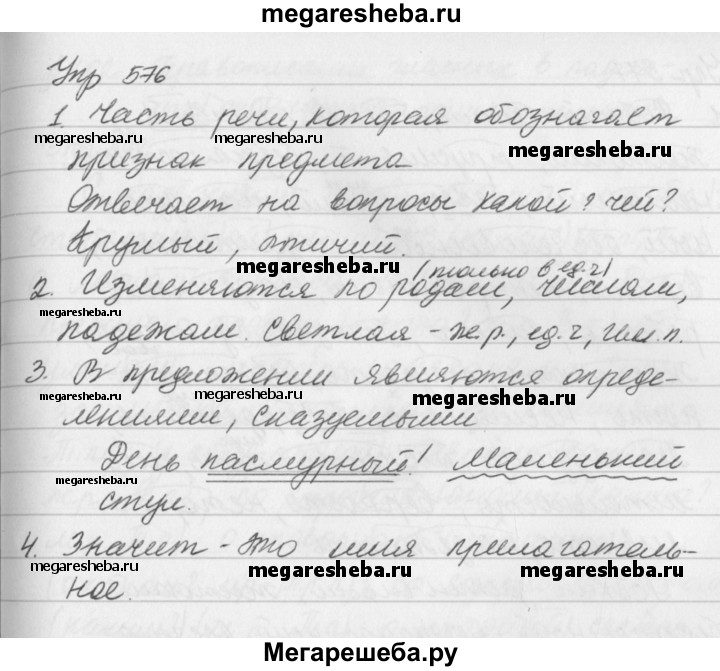 megaresheba.ru
Упр 576
1. Часть речи, которая обозначает
megaresheba.ru megaresheba.ru megaresheba.ru
признак предмета
Отвечает на вопросы какой? чей?
Круглый, птичий.
megaresheba.ru
(только в ед.ч)
2. Изменяются по родам, числам,
megaresheba.ru
падежам. Светлая - ж.р., ед.ч, Им.п.
3. В предложении являются опреде-
megaresheba.ru megaresheba.ru
лениями, сказуемыми
День пасмурный! Маленький
megaresheba.ru
стул.
4. Значит - это имя прилагатель-
megaresheba.ru megaresheba.ru megaresheba.ru
ное.
Мегарешеба.ру